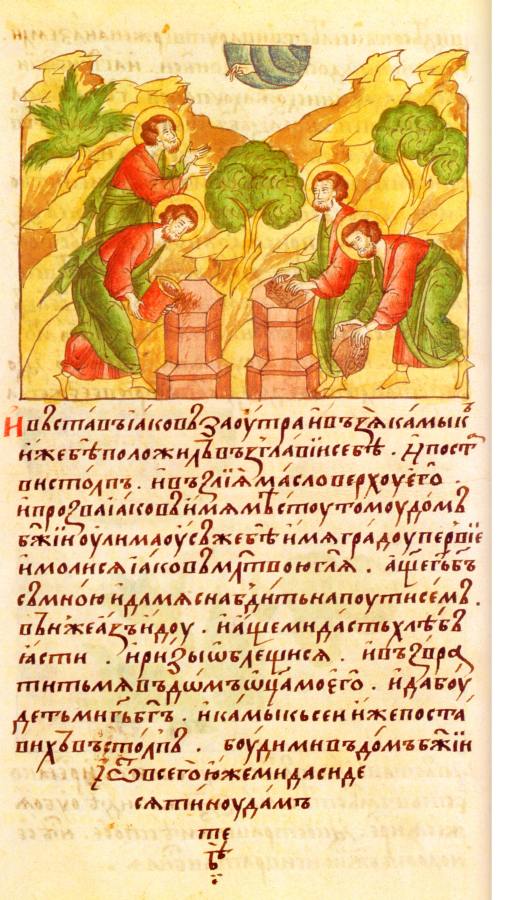 И въставъ іаковъ заоутра и въꙁѧ камык
иже бѣ положилъ въ възглавїи себѣ . И пост
ви столпъ . и въꙁлїѧ масло верхоу его .
и прозва іаковъ имѧ мѣстоу томоу домъ
бж҃їи . оулималоусъ же бѣ имѧ градоу первїе
и молисѧ іаковъ мл҃твою гл҃ѧ . аще г҃ь б҃ъ
съ мною и да мѧ снабдить на поути семъ .
въ нже аꙁъ идоу . и аще ми дасть хлѣбъ
ꙗсти . и ризы ѡблещисѧ . и въꙁвра
тить мѧ въ дѡмъ ѡц҃а моего . и да боу
деть ми г҃ь б҃гъ . и камыкъ сеи иже поста
вихъ въ столпъ . боуди ми въ домъ бж҃їи
и ѿ всего юже ми даси де
сѧтиноу дамъ
те
бѣ